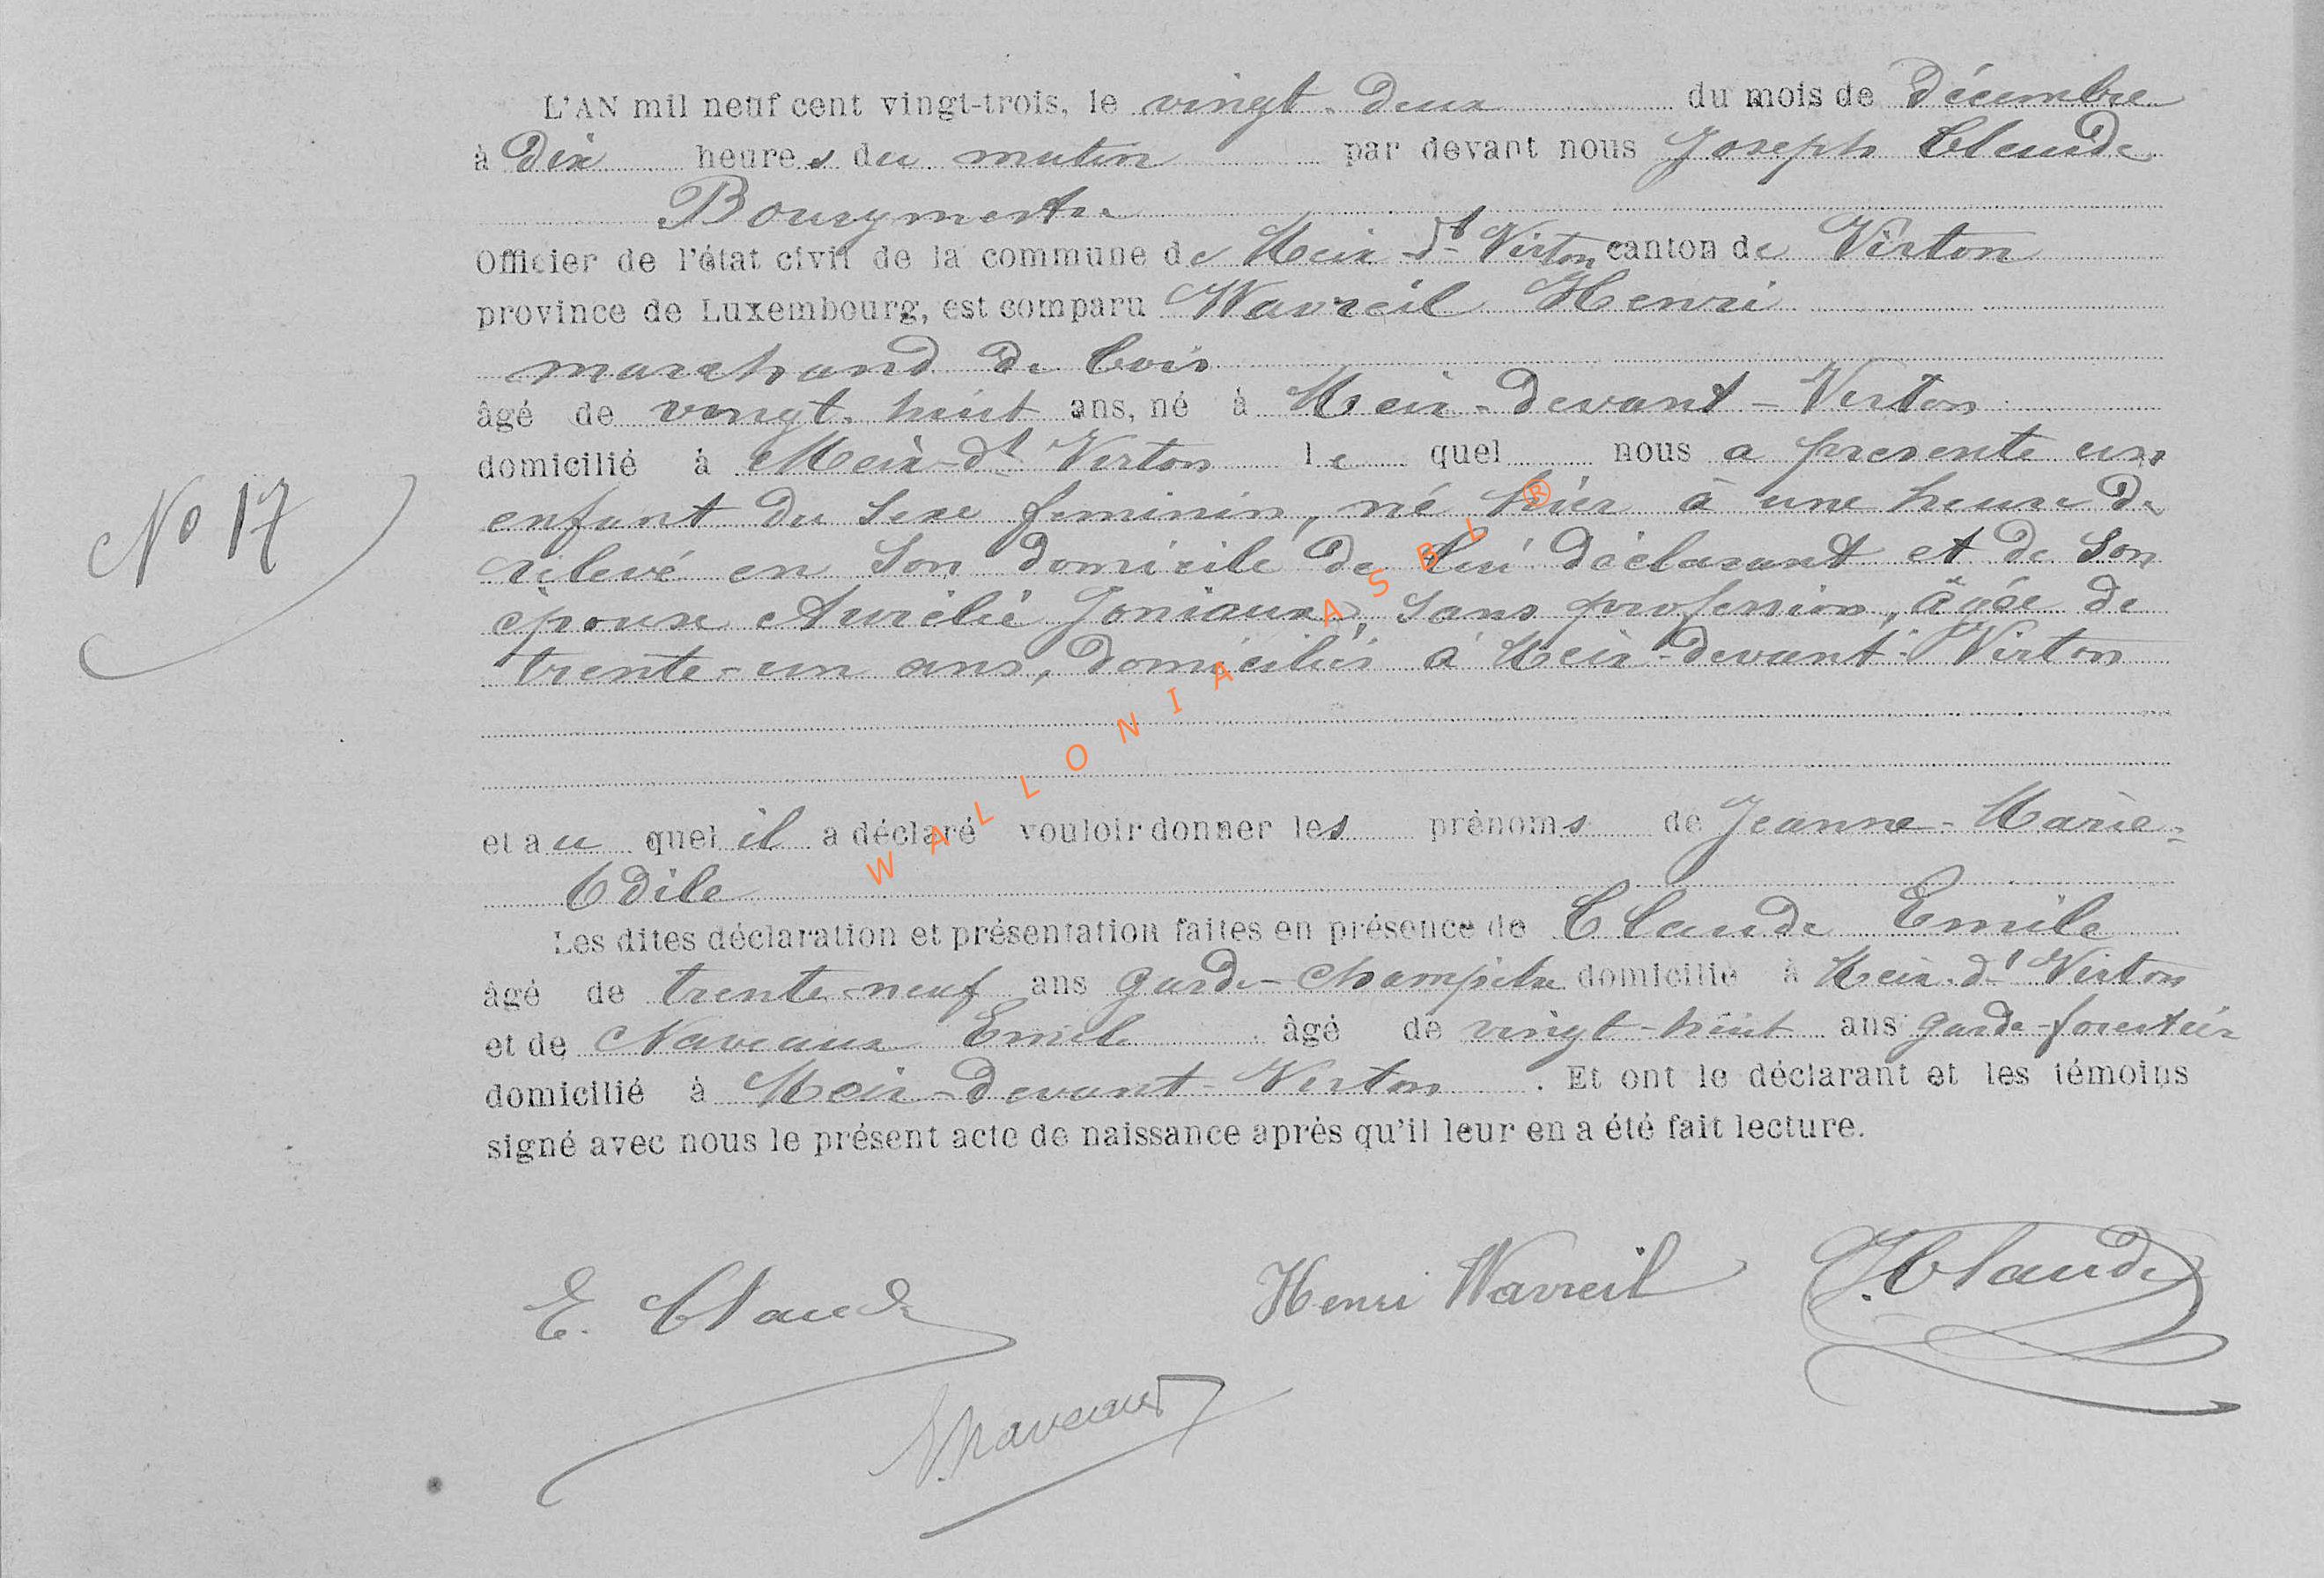 L'AN mil neuf cent vingt-trois, le vingt-deux du mois de Décembre
à Dix heures du matin par devant nous Joseph Claude
Bourgmestre
Officier de l'état civil de la commune de Meix-dt Virton canton de Virton
province de Luxembourg, est comparu Wavreil Henri
marchand de bois
âgé de vingt-huit ans, né à Meix-devant-Virton
domicilié à Meix-dt Virton le quel nous a présenté un
No 17
enfant du sexe féminin, né hier à une heure de
relevé en son domicile de lui déclarant et de son
épouse Aurélie Joniaux, sans profession, âgée de
trente-un ans, domiciliés à Meix-devant-Virton
et au quel il a déclaré vouloir donner les prénoms de Jeanne-Marie-
Odile
Les dites déclaration et présentation faites en présence de Claude Emile
âgé de trente-neuf ans garde-champêtre domicilié à Meix-dt Virton
et de Naveaux Emile âgé de vingt-huit ans garde-forestier
domicilié à Meix-devant-Virton. Et ont le déclarant et les témoins
signé avec nous le présent acte de naissance après qu'il leur en a été fait lecture.
E. Claude Henri Wavreil J. Claude
E. Naveaux
WALLONIA ASBL ®